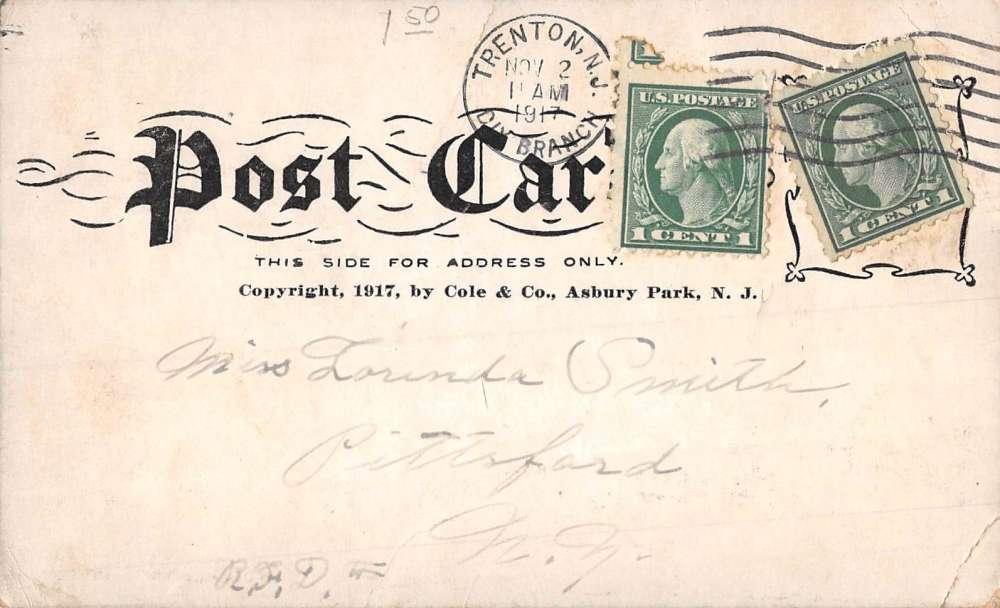 1 50
TRENTON, N.J.
NOV 2
11 AM
1917
DIX BRANCH
U.S. POSTAGE
1 CENT 1
U.S. POSTAGE
1 CENT 1
Post Car
THIS SIDE FOR ADDRESS ONLY.
Copyright, 1917, by Cole & Co., Asbury Park, N. J.
Miss Lorinda Smith,
Pittsford
N. Y.
R.F.D.